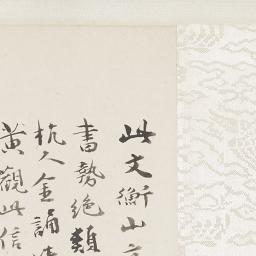 此文衡山
書勢絕類
杭人金誦
黃觀此信